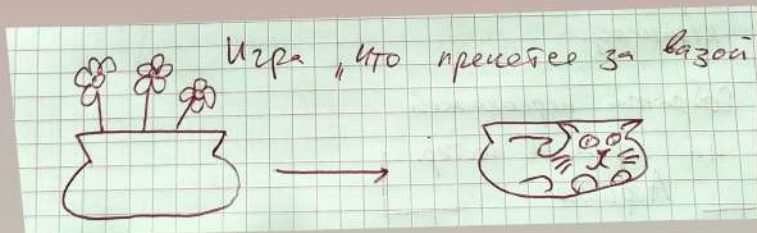 Игра „что прячется за вазой